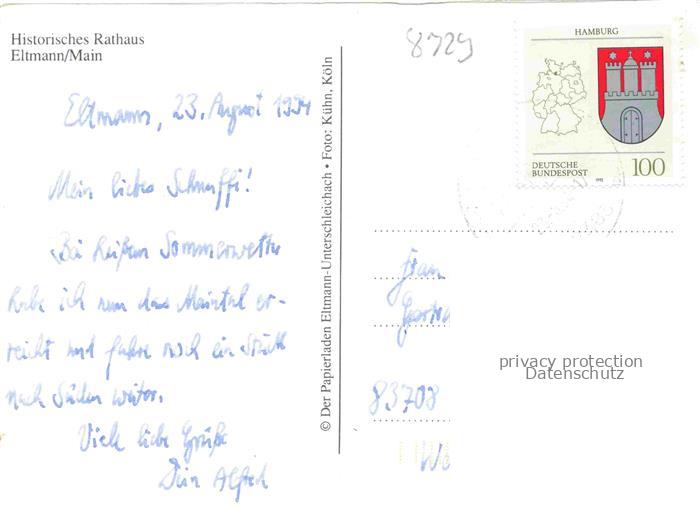 Historisches Rathaus
Eltmann/Main
Eltmann, 23. August 1994
Mein liebes Schnuffi!
Bei heißem Sommerwetter
habe ich nun das Maintal er-
reicht und fahre noch ein Stück
nach Süden weiter.
Viele liebe Grüße
Dein Alfred
© Der Papierladen Eltmann-Unterschleichach • Foto: Kühn, Köln
8729
HAMBURG
DEUTSCHE
BUNDESPOST
100
Frau
83708
privacy protection
Datenschutz